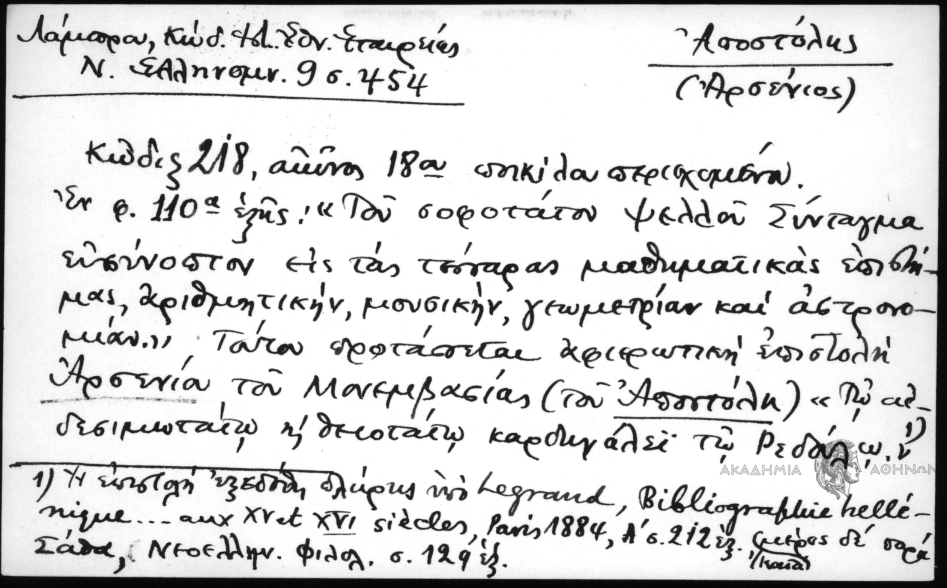 Λάμπρου, Κώδ. Ἱστ. Ἐθν. Ἑταιρείας
Ν. Ἑλληνομν. 9 σ. 454
Ἀποστόλης
(Ἀρσένιος)
Κῶδιξ 218, αἰῶνος 18ου ποικίλου περιεχομένου.
Ἐν φ. 110α ἑξῆς: «Τοῦ σοφοτάτου Ψελλοῦ Σύνταγμα
εὐσύνοπτον εἰς τὰς τέσσαρας μαθηματικὰς ἐπιστή-
μας, ἀριθμητικήν, μουσικήν, γεωμετρίαν καὶ ἀστρονο-
μίαν.» Τούτου προτάσσεται ἀφιερωτικὴ ἐπιστολὴ
Ἀρσενίου τοῦ Μονεμβασίας (τοῦ Ἀποστόλη) «Τῷ αἰ-
δεσιμωτάτῳ κ' θειοτάτῳ καρδηγάλεϊ τῷ Ῥεδόλφῳ.» 1)
ΑΚΑΔΗΜΙΑ ΑΘΗΝΩΝ
1) Ἡ ἐπιστολὴ ἐξεδόθη πλήρης ὑπὸ Legrand, Bibliographie hellé-
nique... aux XV et XVI siècles, Paris 1884, Α΄ σ. 212 ἑξ. μέρος δὲ παρὰ
Σάθα, Νεοελλην. Φιλολ. σ. 129 ἑξ.